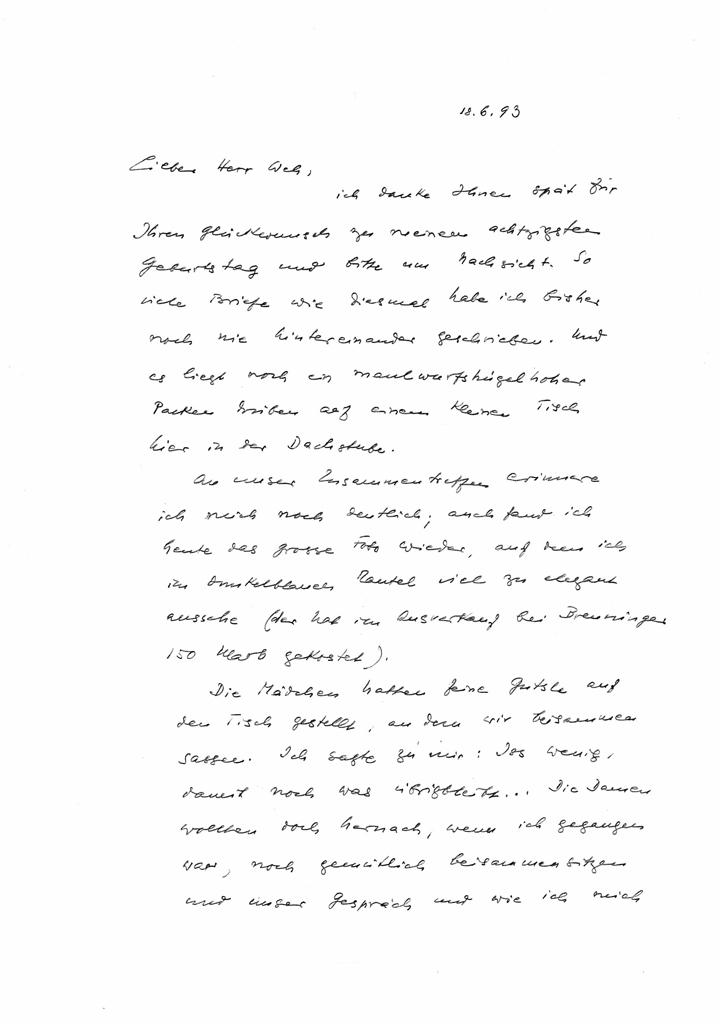 18.6.93
Lieber Herr Weh,
ich danke Ihnen spät für
Ihren Glückwunsch zu meinem achtzigsten
Geburtstag und bitte um Nachsicht. So
viele Briefe wie diesmal habe ich bisher
noch nie hintereinander geschrieben. Und
es liegt noch ein maulwurfshügelhoher
Packen drüben auf einem kleinen Tisch
hier in der Dachstube.
An unser Zusammentreffen erinnere
ich mich noch deutlich; auch fand ich
heute das grosse Foto wieder, auf dem ich
im dunkelblauen Mantel viel zu elegant
aussehe (der hat im Ausverkauf bei Breuninger
150 Mark gekostet).
Die Mädchen hatten feine Gutsle auf
den Tisch gestellt, an dem wir beisammen
sassen. Ich sagte zu mir: Iss wenig,
damit noch was übrigbleibt... Die Damen
wollten doch hernach, wenn ich gegangen
war, noch gemütlich beisammensitzen
und unser Gespräch und wie ich mich